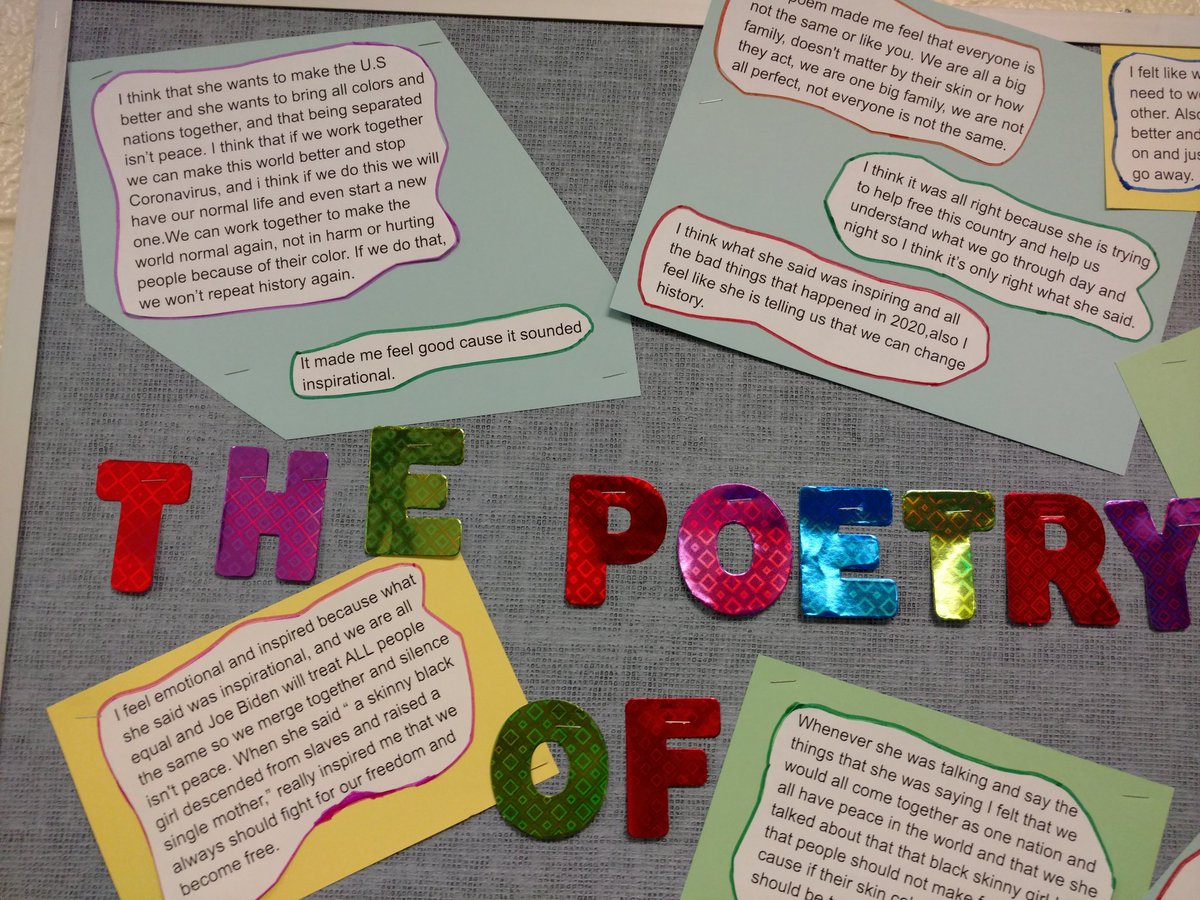 I think that she wants to make the U.S
better and she wants to bring all colors and
nations together, and that being separated
isn't peace. I think that if we work together
we can make this world better and stop
Coronavirus, and i think if we do this we will
have our normal life and even start a new
one.We can work together to make the
world normal again, not in harm or hurting
people because of their color. If we do that,
we won't repeat history again.
It made me feel good cause it sounded
inspirational.
poem made me feel that everyone is
not the same or like you. We are all a big
family, doesn't matter by their skin or how
they act, we are one big family, we are not
all perfect, not everyone is not the same.
I think it was all right because she is trying
to help free this country and help us
understand what we go through day and
night so I think it's only right what she said.
I think what she said was inspiring and all
the bad things that happened in 2020,also I
feel like she is telling us that we can change
history.
I felt like
need to
other. Also
better and
on and
go away.
THE POETRY
OF
I feel emotional and inspired because what
she said was inspirational, and we are all
equal and Joe Biden will treat ALL people
the same so we merge together and silence
isn't peace. When she said " a skinny black
girl descended from slaves and raised a
single mother," really inspired me that we
always should fight for our freedom and
become free.
Whenever she was talking and say the
things that she was saying I felt that we
would all come together as one nation and
all have peace in the world and that we she
talked about that that black skinny girl
that people should not make
cause if their skin
should be